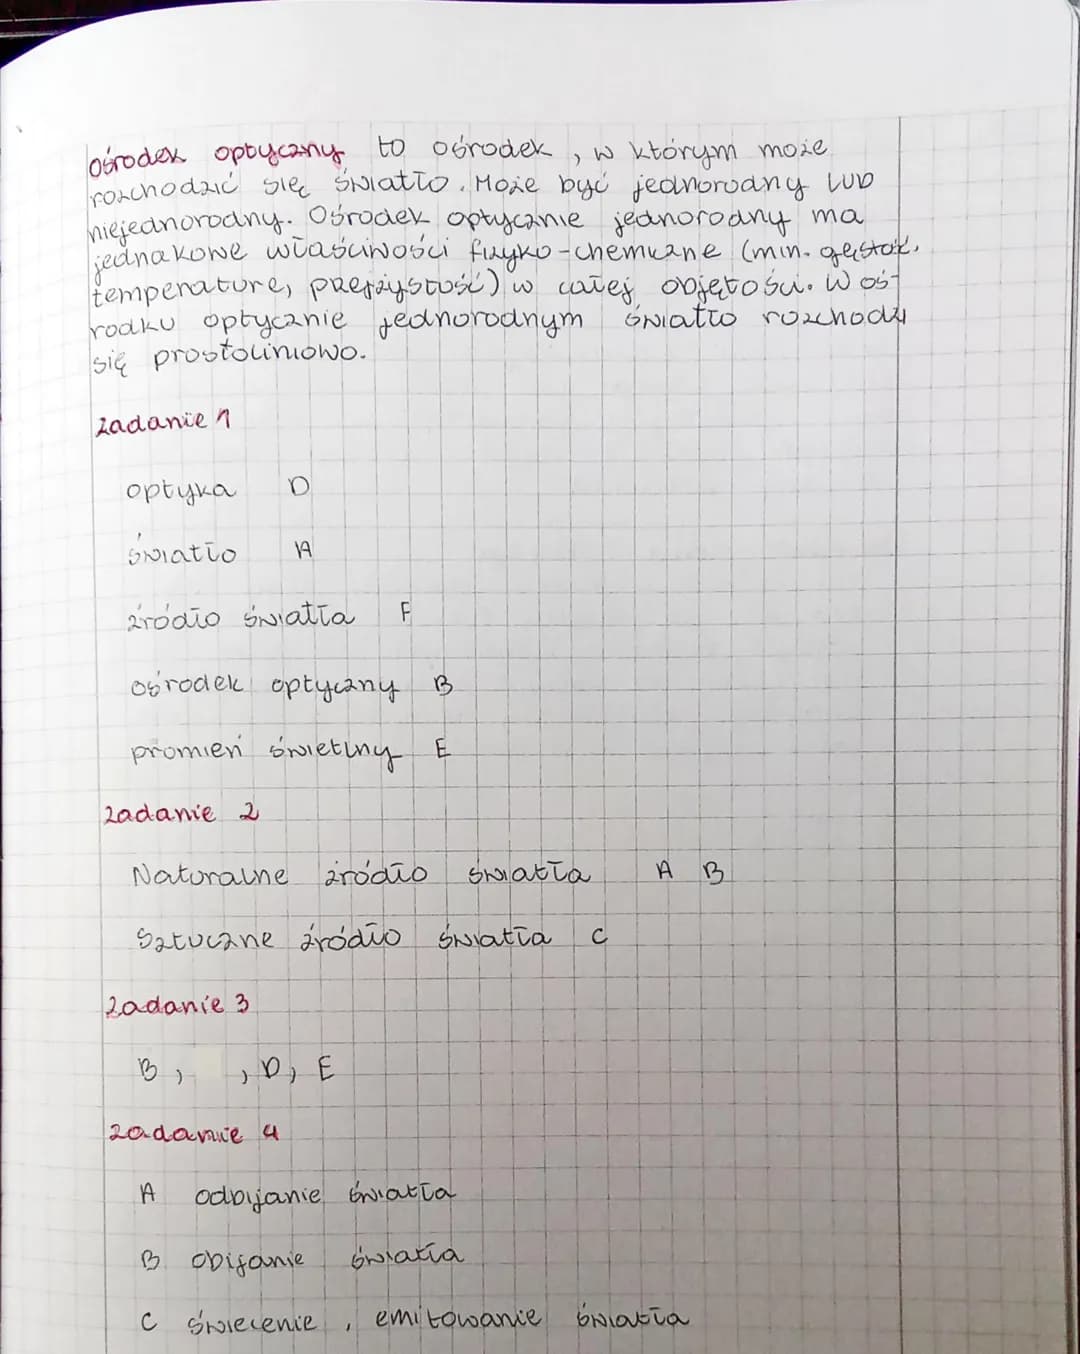 ośrodek optyczny to ośrodek, w którym może
rozchodzić się światło. Może być jednorodny lub
niejednorodny. Ośrodek optycznie jednorodny ma
jednakowe właściwości fizyko-chemiczne (min. gęstość,
temperature, przejżystość) w całej objętości. W oś-
rodku optycznie jednorodnym światło rozchodzi
się prostoliniowo.
zadanie 1
optyka D
światło A
źródło światła F
ośrodek optyczny B
promień świetlny E
zadanie 2
Naturalne źródło światła A B
Sztuczne źródło światła C
zadanie 3
B, , D, E
zadanie 4
A odbijanie światła
B obijanie światła
C świecenie, emitowanie światła